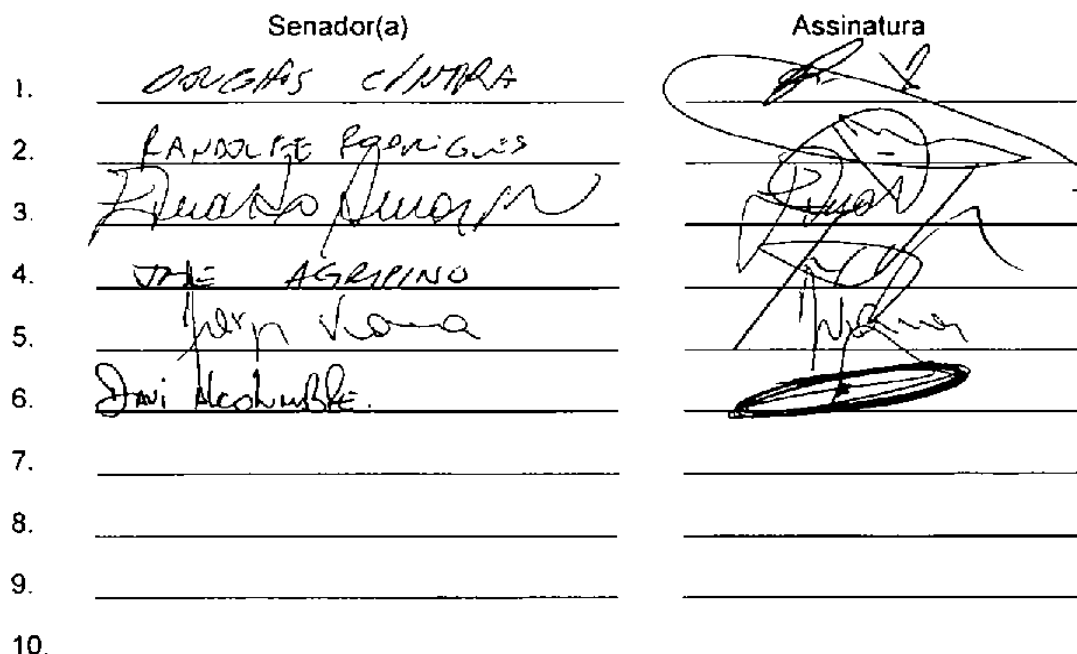 Senador(a) Assinatura
1. DOUGLAS CINTRA
2. RANDOLFE RODRIGUES
3. Eduardo Amorim
4. JOSÉ AGRIPINO
5. Jorge Viana
6. Davi Alcolumbre.
7.
8.
9.
10.